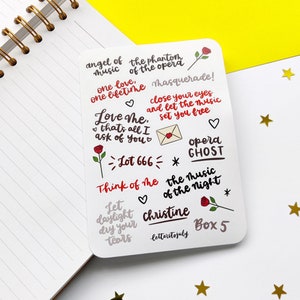 angel of
music
the phantom
of the opera
one love,
one lifetime
Masquerade!
close your eyes
and let the music
set you free
Love Me,
that's all I
ask of you
opera
GHOST
Lot 666
Think of Me
the music
of the Night
Let
daylight
dry your
tears
christine
Box 5